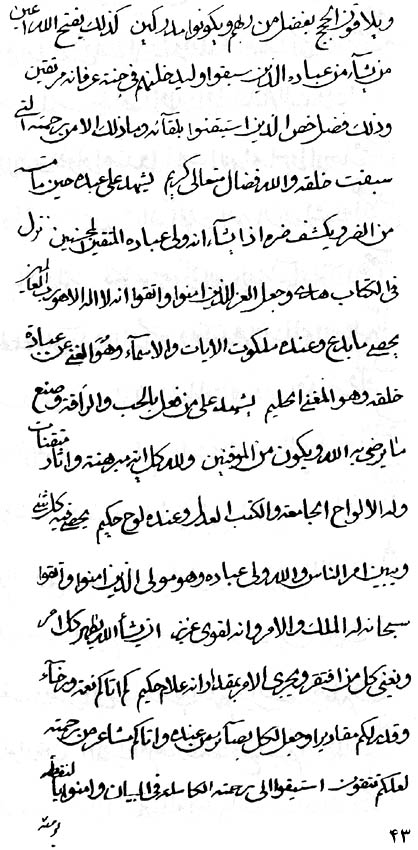 ويلاقون الحج بفضل من ربهم ويكونوا مدركين كذلك يفتح الله اعين
من يشآء من عباده الذين سبقوا وليدخلنهم في جنة عرفانه مرتقين
وذلك فضل خص الذين استيقنوا بلقآئه وما ذلك الا من رحمته التي
سبقت خلقه والله فضال متعالي كريم ليشهد على عبده حين ما مسه
من الضر ويكشف ضره اذا يشآء انه ولي عباده المتقين المحسنين نزل
في الكتاب هدى وجعل العز للذين امنوا واتقوا انه لا اله الا هو رب العالمين
يحصي ما يدع وعنده ملكوت الايات والاسمآء وهو الغني عن عبادة
خلقه وهو المغني الحليم ليشهد على من فعل بالحب والرافة وصنع
ما يرضى به الله ويكون من الموقنين ولله كل اية مبرهنة واثار متقنات
وله الالواح الجامعة والكتب العدل وعنده لوح حكيم يحصي فيه كل شئ
ويبين امر الناس والله ولي عباده وهو مولى الذين امنوا واتقوا
سبحانه له الملك والامر وانه لقوي عزيز ان يشأ الله يظهر كل امر
ويغني كل من افتقر ويجري الامر بمقدار انه علام حكيم كم اتاكم نعمة ورخآء
وقدر لكم مقاديرا وجعل الكل بصآئر من عنده واتاكم مشاعر من رحمته
لعلكم تتقون استبقوا الى رحمته الكاملة في البيان وامنوا بالنقطة
۴۳